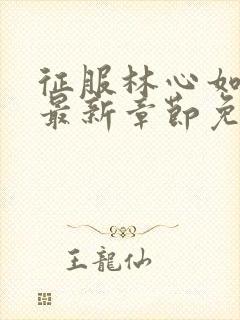 征服林心如
最新章节免
王龍仙